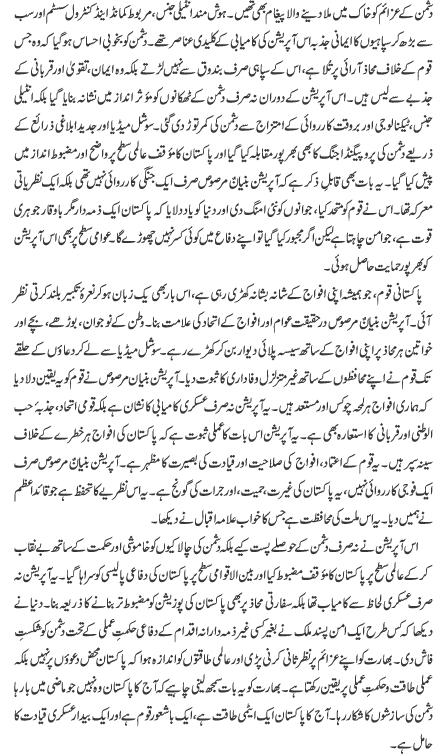 دشمن کے عزائم کو خاک میں ملا دینے والا پیغام بھی تھیں۔ ہوش مند انٹیلی جنس، مربوط کمانڈ اینڈ کنٹرول سسٹم اور سب
سے بڑھ کر سپاہیوں کا ایمانی جذبہ اس آپریشن کی کامیابی کے کلیدی عناصر تھے۔ دشمن کو بخوبی احساس ہو گیا کہ وہ جس
قوم کے خلاف محاذ آرائی پر تلا ہے، اس کے سپاہی صرف بندوق سے نہیں لڑتے بلکہ وہ ایمان، تقویٰ اور قربانی کے
جذبے سے لیس ہیں۔ اس آپریشن کے دوران نہ صرف دشمن کے ٹھکانوں کو مؤثر انداز میں نشانہ بنایا گیا بلکہ انٹیلی
جنس، ٹیکنالوجی اور بروقت کارروائی کے امتزاج سے دشمن کی کمر توڑ دی گئی۔ سوشل میڈیا اور جدید ابلاغی ذرائع کے
ذریعے دشمن کی پروپیگنڈا جنگ کا بھی بھرپور مقابلہ کیا گیا اور پاکستان کا مؤقف عالمی سطح پر واضح اور مضبوط انداز میں
پیش کیا گیا۔ یہ بات بھی قابلِ ذکر ہے کہ آپریشن بنیانٌ مرصوص صرف ایک جنگی کارروائی نہیں تھی بلکہ ایک نظریاتی
معرکہ تھا۔ اس نے قوم کو متحد کیا، جوانوں کو نئی امنگ دی اور دنیا کو یاد دلایا کہ پاکستان ایک ذمہ دار مگر باوقار جوہری
قوت ہے، جو امن چاہتا ہے لیکن اگر مجبور کیا گیا تو اپنے دفاع میں کوئی کسر نہیں چھوڑے گا۔ عوامی سطح پر بھی اس آپریشن
کو بھرپور حمایت حاصل ہوئی۔
پاکستانی قوم، جو ہمیشہ اپنی افواج کے شانہ بشانہ کھڑی رہی ہے، اس بار بھی یک زبان ہو کر نعرۂ تکبیر بلند کرتی نظر
آئی۔ آپریشن بنیانٌ مرصوص درحقیقت عوام اور افواج کے اتحاد کی علامت بنا۔ وطن کے نوجوان، بوڑھے، بچے اور
خواتین ہر محاذ پر اپنی افواج کے ساتھ سیسہ پلائی دیوار بن کر کھڑے رہے۔ سوشل میڈیا سے لے کر دعاؤں کے حلقے
تک قوم نے اپنے محافظوں کے ساتھ غیر متزلزل وفاداری کا ثبوت دیا۔ آپریشن بنیانٌ مرصوص نے قوم کو یہ یقین دلا دیا
کہ ہماری افواج ہر لمحہ چوکس اور مستعد ہیں۔ یہ آپریشن نہ صرف عسکری کامیابی کا نشان ہے بلکہ قومی اتحاد، جذبۂ حب
الوطنی اور قربانی کا استعارہ بھی ہے۔ یہ آپریشن اس بات کا عملی ثبوت ہے کہ پاکستان کی افواج ہر خطرے کے خلاف
سینہ سپر ہیں۔ یہ قوم کے اعتماد، افواج کی صلاحیت اور قیادت کی بصیرت کا مظہر ہے۔ آپریشن بنیانٌ مرصوص صرف
ایک فوجی کارروائی نہیں، یہ پاکستان کی غیرت، حمیت، اور جرات کی گونج ہے۔ یہ اس نظریے کا تحفظ ہے جو قائداعظم
نے ہمیں دیا۔ یہ اس ملت کی محافظت ہے جس کا خواب علامہ اقبال نے دیکھا۔
اس آپریشن نے نہ صرف دشمن کے حوصلے پست کیے بلکہ دشمن کی چالاکیوں کو خاموشی اور حکمت کے ساتھ بے نقاب
کر کے عالمی سطح پر پاکستان کا مؤقف مضبوط کیا اور بین الاقوامی سطح پر پاکستان کی دفاعی پالیسی کو سراہا گیا۔ یہ آپریشن نہ
صرف عسکری لحاظ سے کامیاب تھا بلکہ سفارتی محاذ پر بھی پاکستان کی پوزیشن کو مضبوط تر بنانے کا ذریعہ بنا۔ دنیا نے
دیکھا کہ کس طرح ایک امن پسند ملک نے بغیر کسی غیر ذمہ دارانہ اقدام کے دفاعی حکمتِ عملی کے تحت دشمن کو شکستِ
فاش دی۔ بھارت کو اپنے عزائم پر نظرثانی کرنی پڑی اور عالمی طاقتوں کو اندازہ ہوا کہ پاکستان محض دعوؤں پر نہیں بلکہ
عملی طاقت و حکمتِ عملی پر یقین رکھتا ہے۔ بھارت کو یہ بات سمجھ لینی چاہیے کہ آج کا پاکستان وہ نہیں جو ماضی میں بارہا
دشمن کی سازشوں کا شکار رہا۔ آج کا پاکستان ایک ایٹمی طاقت ہے، ایک باشعور قوم ہے اور ایک بیدار عسکری قیادت کا
حامل ہے۔